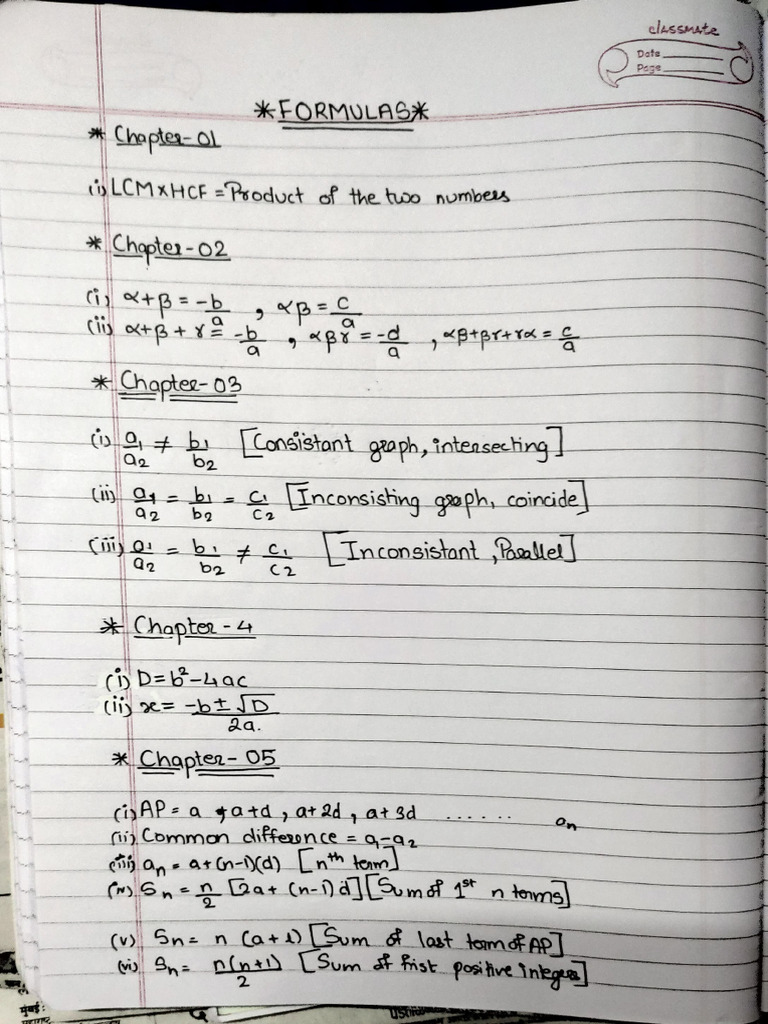 classmate
Date
Page
*FORMULAS*
* Chapter-01
(i) LCM×HCF = Product of the two numbers
* Chapter-02
(i) α+β = -b/a , αβ = c/a
(ii) α+β+γ = -b/a , αβγ = -d/a , αβ+βγ+γα = c/a
* Chapter-03
(i) a1/a2 ≠ b1/b2 [Consistant graph, intersecting]
(ii) a1/a2 = b1/b2 = c1/c2 [Inconsisting graph, coincide]
(iii) a1/a2 = b1/b2 ≠ c1/c2 [Inconsistant, Parallel]
* Chapter-4
(i) D=b²-4ac
(ii) x = -b±√D/2a.
* Chapter-05
(i) AP = a, a+d, a+2d, a+3d ...... an
(ii) Common difference = a-a2
(iii) an = a+(n-1)(d) [nth term]
(iv) Sn = n/2 [2a+(n-1)d] [Sum of 1st n terms]
(v) Sn = n (a+l) [Sum of last term of AP]
(vi) Sn = n(n+1)/2 [Sum of frist positive integers]
मुंबई: